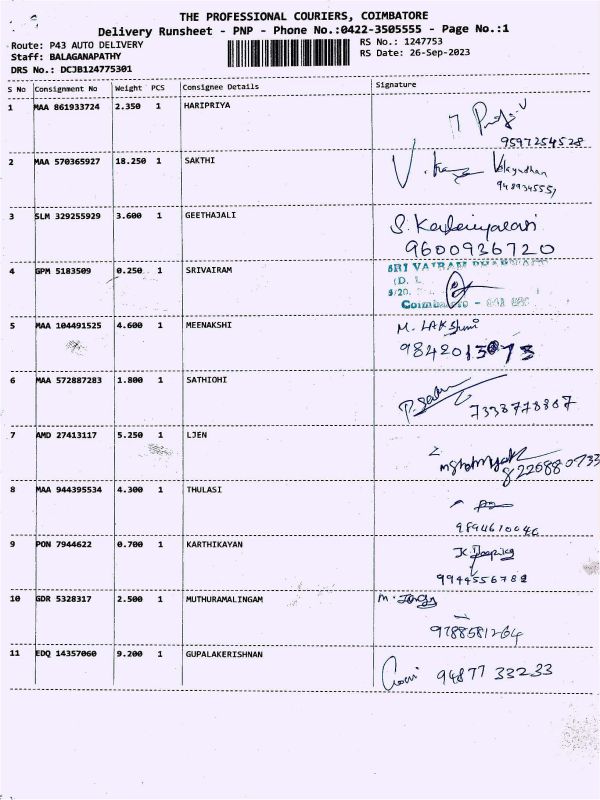 THE PROFESSIONAL COURIERS, COIMBATORE
Delivery Runsheet - PNP - Phone No.:0422-3505555 - Page No.:1
Route: P43 AUTO DELIVERY RS No.: 1247753
Staff: BALAGANAPATHY RS Date: 26-Sep-2023
DRS No.: DCJB124775301
S No Consignment No Weight PCS Consignee Details Signature
1 MAA 861933724 2.350 1 HARIPRIYA
9597254528
2 MAA 570365927 18.250 1 SAKTHI
V. Velayudhan
3 SLM 329255929 3.600 1 GEETHAJALI S.
9600936720
4 GPM 5183509 0.250 1 SRIVAIRAM SRI VAIRAM
Coimbatore
5 MAA 104491525 4.600 1 MEENAKSHI M. LAKShmi
6 MAA 572887283 1.800 1 SATHIOHI
7338778867
7 AMD 27413117 5.250 1 LJEN
8 MAA 944395534 4.300 1 THULASI
9 PON 7944622 0.700 1 KARTHIKAYAN
9944556782
10 GDR 5328317 2.500 1 MUTHURAMALINGAM M.
9788581264
11 EDQ 14357060 9.200 1 GUPALAKERISHNAN 94877 33233